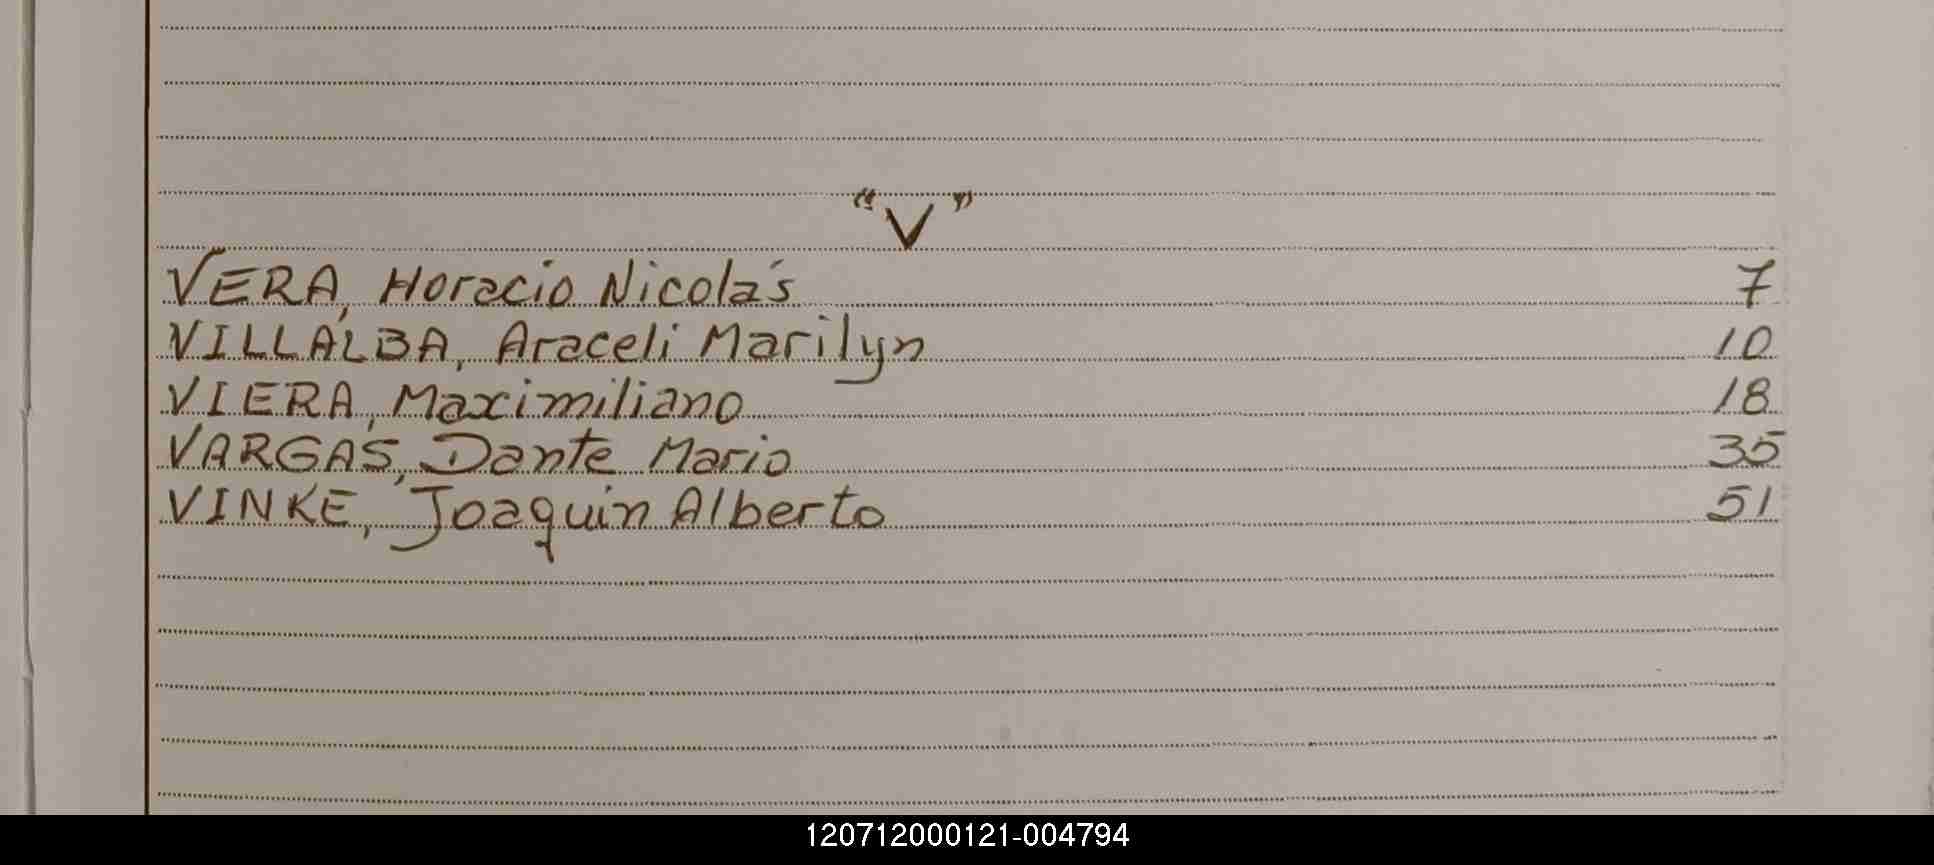 "V"
VERA, Horacio Nicolás 7
VILLALBA, Araceli Marilyn 10
VIERA, Maximiliano 18
VARGAS, Dante Mario 35
VINKE, Joaquin Alberto 51
120712000121-004794